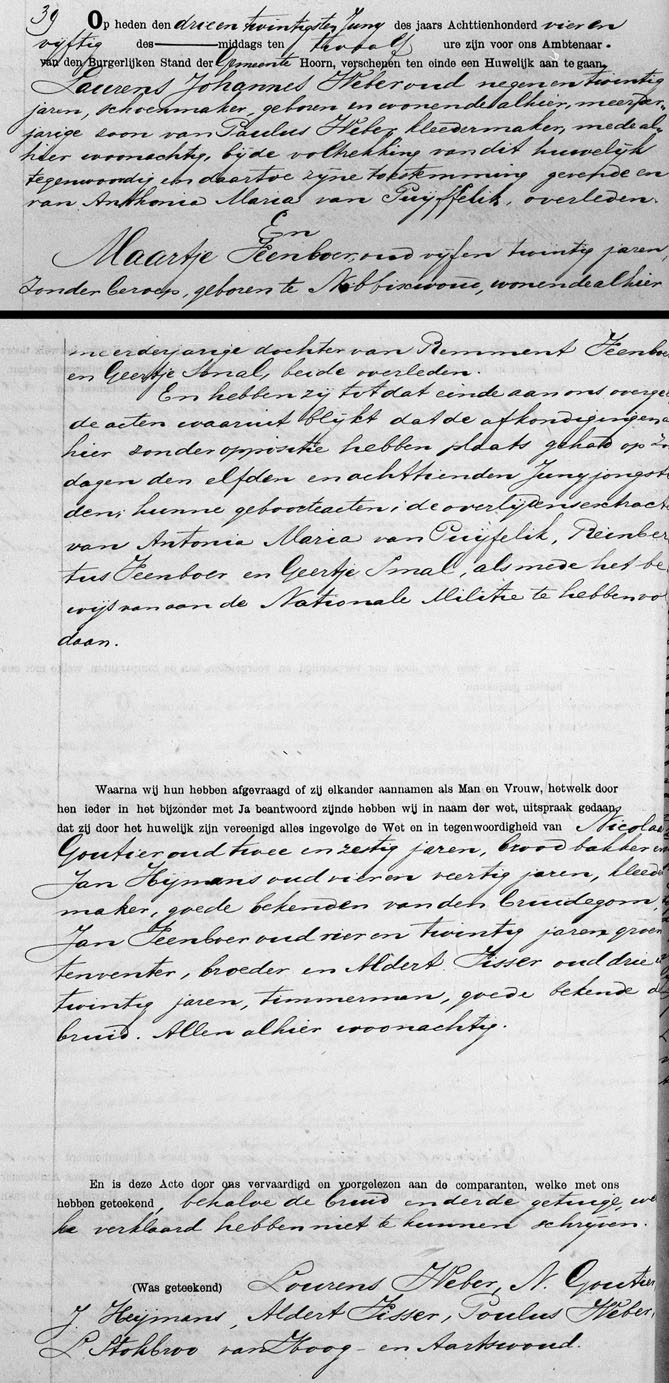 39
Op heden den drie en twintigsten Juny des jaars Achttienhonderd vier en
vijftig des middags ten twaalf ure zijn voor ons Ambtenaar
van den Burgerlijken Stand der Gemeente Hoorn, verschenen ten einde een Huwelijk aan te gaan,
Laurens Johannes Weber oud negen en twintig
jaren, schoenmaker, geboren en wonende alhier, meerder-
jarige zoon van Paulus Weber, kleedermaker, mede al-
hier woonachtig, bij de voltrekking van dit huwelijk
tegenwoordig en daartoe zijne toestemming gevende en
van Anthonia Maria van Puijffelik, overleden.
En
Maartje Feenboer, oud vijf en twintig jaren,
zonder beroep, geboren te Nibbixwoud, wonende alhier
meerderjarige dochter van Remment Feenboe
en Geertje Smal, beide overleden.
En hebben zij tot dat einde aan ons overge
de acten waaruit blijkt dat de afkondigingen a
hier zonder oppositie hebben plaats gehad op Zo
dagen den elfden en achttienden Juny jongstl
den; hunne geboorteacten; de overlijdensextracte
van Antonia Maria van Puijfelik, Reinber
tus Feenboer en Geertje Smal, alsmede het be
wijs van aan de Nationale Militie te hebben vol
daan.
Waarna wij hun hebben afgevraagd of zij elkander aannamen als Man en Vrouw, hetwelk door
hen ieder in het bijzonder met Ja beantwoord zijnde hebben wij in naam der wet, uitspraak gedaan,
dat zij door het huwelijk zijn vereenigd alles ingevolge de Wet en in tegenwoordigheid van Nicolaas
Goutier oud twee en zestig jaren, broodbakker en
Jan Heijmans oud vier en veertig jaren, kleede
maker, goede bekenden van den bruidegom,
Jan Feenboer oud vier en twintig jaren groen
tenventer, broeder en Aldert Fisser oud drie e
twintig jaren, timmerman, goede bekende d
bruid. Allen alhier woonachtig.
En is deze Acte door ons vervaardigd en voorgelezen aan de comparanten, welke met ons
hebben geteekend, behalve de bruid en derde getuige, we
ke verklaard hebben niet te kunnen schrijven.
(Was geteekend) Lourens Weber, N. Goutier
J. Heijmans, Aldert Fisser, Paulus Weber,
P. Stokbroo van Hoog- en Aartswoud.